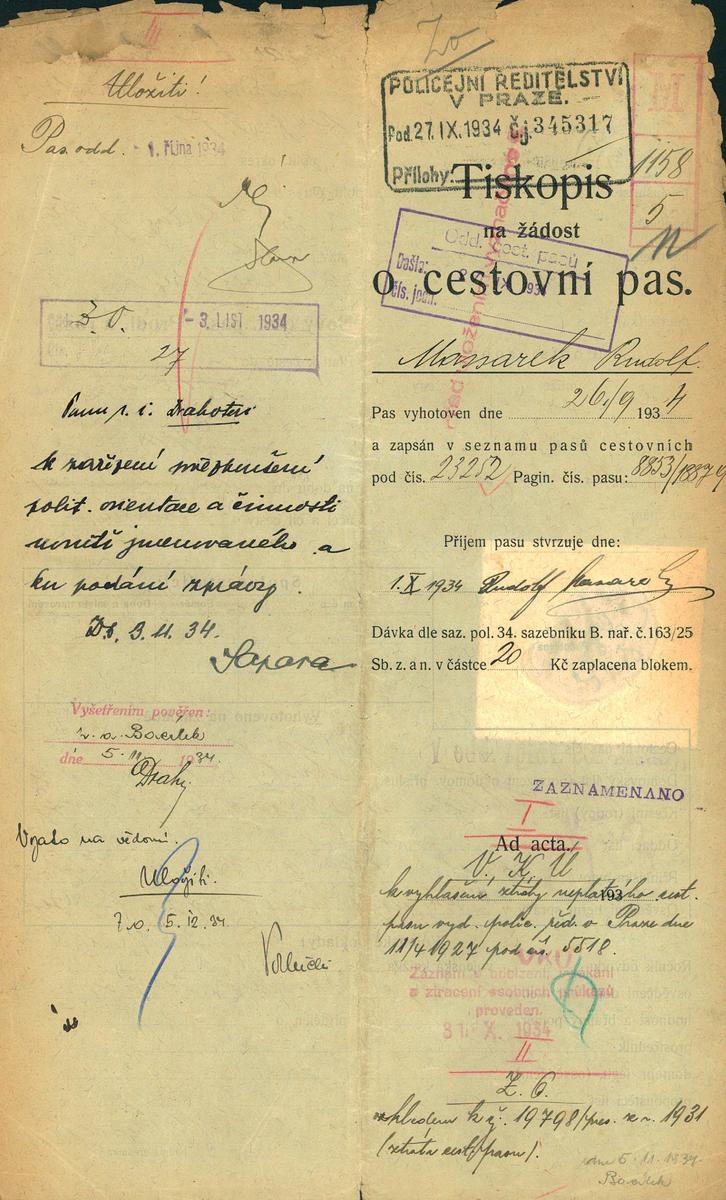 III
Uložiti!
Pas. odd. - 1. října 1934
3.0. - 3. LIST 1934
27
Panu r. i.
k zařízení
polit. orientace a činnosti
jmenovaného a
ku podání zprávy.
9.11.34.
Vyšetřením pověřen:
dne 5.11. 1934.
Vzato na vědomí.
Uložiti.
5.12.34.
POLICEJNÍ ŘEDITELSTVÍ
V PRAZE.
Pod. 27. IX. 1934 Č.j. 345317
Přílohy:
1158
5
Tiskopis
na žádost
Odd. cest. pasů
Došla:
Čís. jedn.
o cestovní pas.
Massarek Rudolf.
Pas vyhotoven dne 26./9 1934
a zapsán v seznamu pasů cestovních
pod čís. 23252 Pagin. čís. pasu: 8853/
Příjem pasu stvrzuje dne:
1.X 1934 Rudolf
Dávka dle saz. pol. 34. sazebníku B. nař. č. 163/25
Sb. z. a n. v částce 20 Kč zaplacena blokem.
ZAZNAMENANO
I
Ad acta.
V. K. U 193
k vyhlášení ztráty neplatného cest.
pasu vyd. polic. řed. v Praze dne
11/4 1927 pod čís. 5518.
Záznam o
a ztracení osobních průkazů
proveden.
31. X. 1934
II
vzhledem k 19798/pres. z r. 1931
(ztráta cest. pasu).
dne 5.11.1934